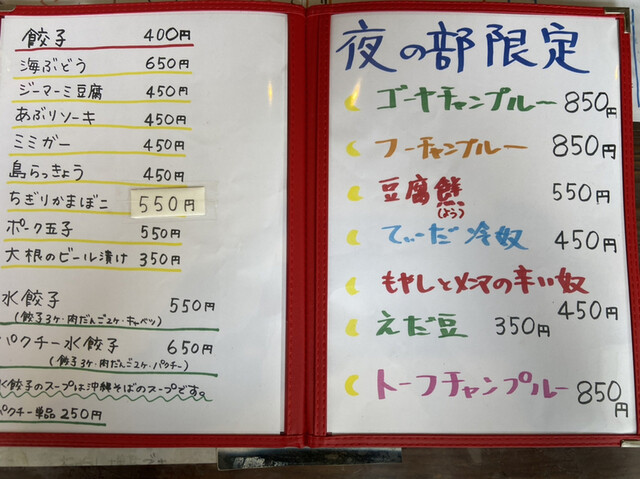 餃子 400円
海ぶどう 650円
ジーマーミ豆腐 450円
あぶりソーキ 450円
ミミガー 450円
島らっきょう 450円
ちぎりかまぼこ 550円
ポーク玉子 550円
大根のビール漬け 350円
水餃子 550円
(餃子3ケ・肉だんご2ケ・キャベツ)
パクチー水餃子 650円
(餃子3ケ・肉だんご2ケ・パクチー)
水餃子のスープは沖縄そばのスープです。
パクチー単品 250円
夜の部限定
ゴーヤチャンプルー 850円
フーチャンプルー 850円
豆腐餻 550円
(よう)
てぃーだ冷奴 450円
もやしとメンマの辛い奴
450円
えだ豆 350円
トーフチャンプルー 850円